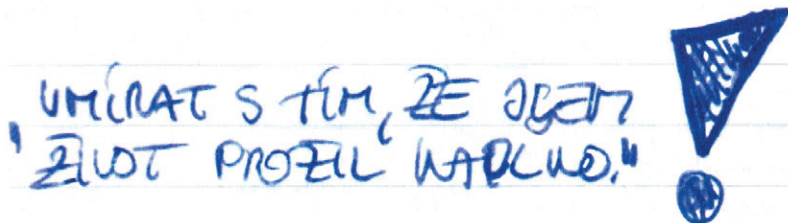 „UMÍRAT S TÍM, ŽE JSEM
ŽIVOT PROŽIL NAPLNO.“